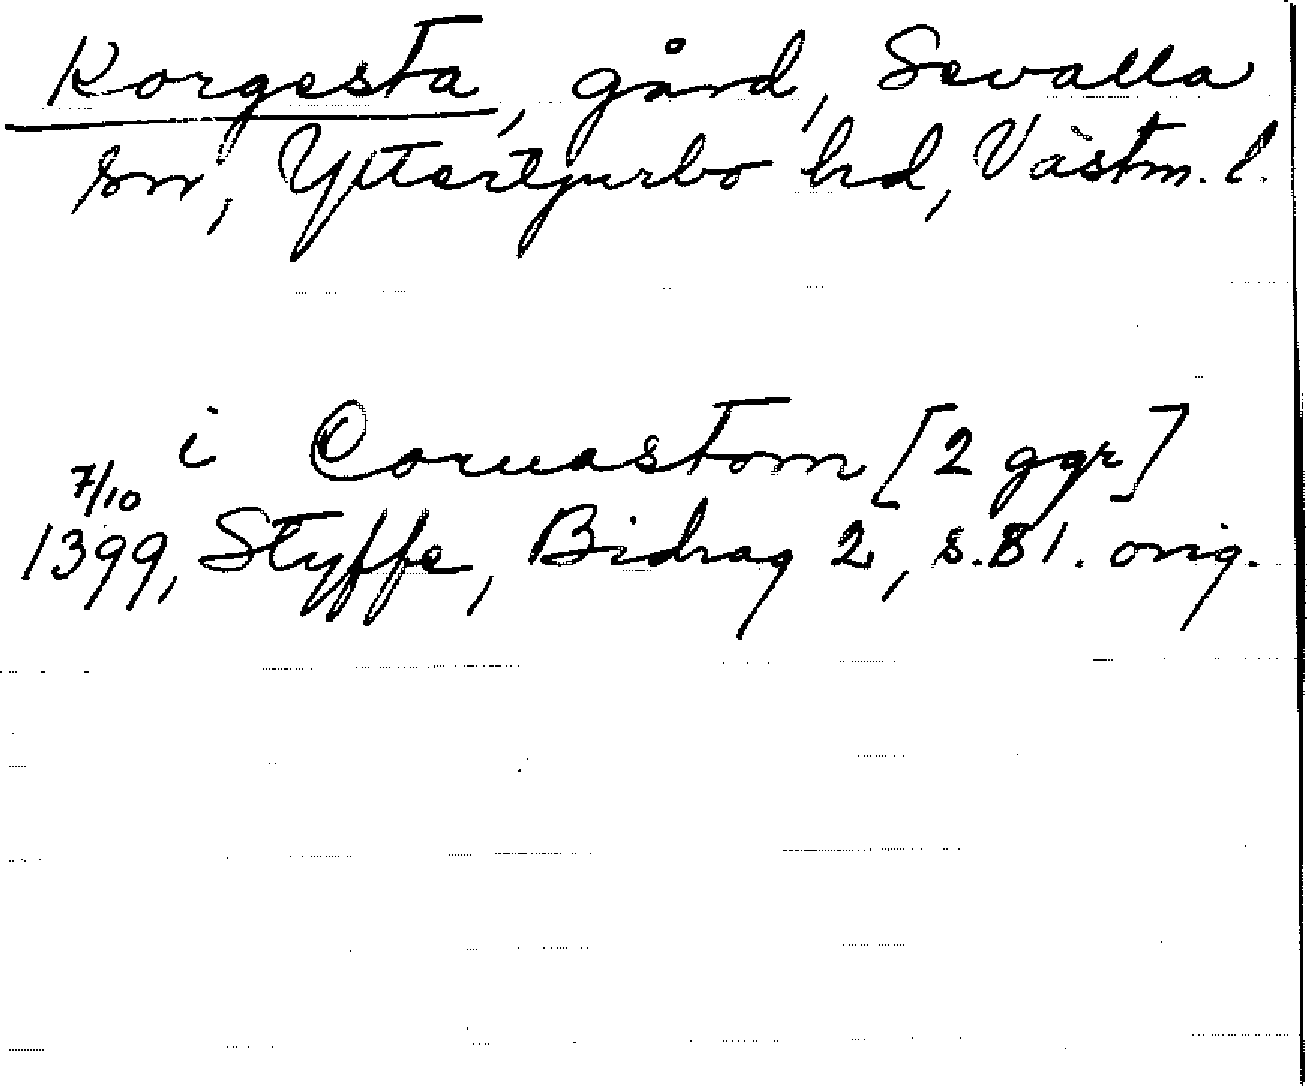 Korgesta, gård, Sevalla
sn, Yttertjurbo hd, Västm. l.
i Coruastom [2 ggr]
7/10
1399, Styffe, Bidrag 2, s. 81. orig.